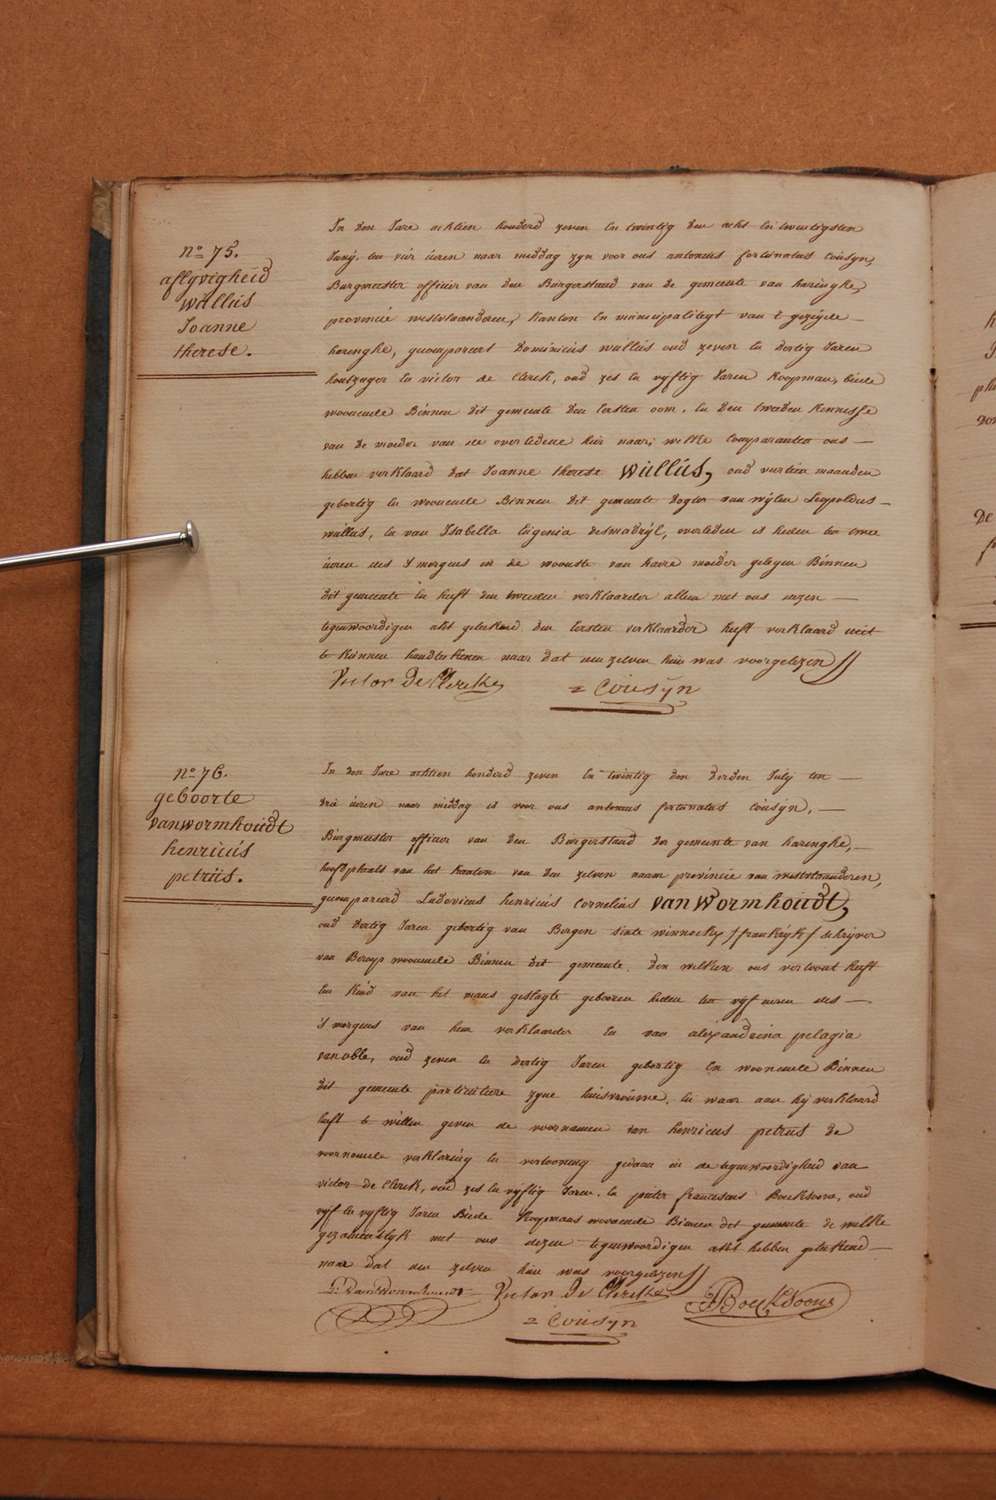 n° 75.
aflyvigheid
Wallus
Joanne
therese.
In den Jare achtien honderd zeven en twintig den acht en twentigsten
Juny, ten vier uren naar middag zyn voor ons antonius fortunatus Cousyn,
Burgmeester officier van den Burgerstand van de gemeente van haringhe,
provincie westvlaanderen, kanton en municipaliteyt van t gezeyde
haringhe, gecompareert Dominicus wallus oud zeven en dertig Jaren
houtzager en victor de Clerck, oud zes en vyftig Jaren koopman, beide
woonende Binnen dit gemeente den Eersten oom, en den tweeden kennisse
van de moeder van de overledene hier naar; welke Comparanten ons
hebben verklaard dat Joanne therese Wallus, oud veertien maanden
gebortig en woonende Binnen dit gemeente dogter van wylen Leopoldus
wallus, en van Isabella Eugenia desmadryl, overleden is heden ten twee
uren des S morgens in de woonste van haere moeder gelegen Binnen
dit gemeente en heeft den tweeden verklaarder allen met ons dezen
tegenwoordigen akt geteekend den Eersten verklaarder heeft verklaard niet
te kunnen handteekenen naar dat aen zelven hier was voorgelezen
Victor De Clercke
Cousyn
n° 76.
geboorte
vanwormhoudt
henricus
petrus.
In den Jare achtien honderd zeven en twintig den derden July ten
drie uren naar middag is voor ons antonius fortunatus Cousyn,
Burgmeester officier van den Burgerstand der gemeente van haringhe,
hoofdplaats van het kanton van den zelven naam provincie van westvlaanderen,
gecompareerd Ludovicus henricus Cornelius vanWormhoudt,
oud dertig Jaren gebortig van Bergen sinte winnockx (frankryk) schryver
van Beroep woonende Binnen dit gemeente, den welken ons vertoont heeft
Een kind van het mans geslagte gebooren heden ten vyf uren des
S morgens van hem verklaarder en van alexandrina pelagia
vanoble, oud zeven en dertig Jaren gebortig En woonende Binnen
dit gemeente particuliere zyne huisvrouwe, en waar aan hy verklaard
heeft te willen geven de voornamen van henricus petrus de
voornoemde verklaring en vertooning gedaan in de tegenwoordigheid van
victor de Clerck, oud zes en vyftig Jaren, en pieter franciscus Boecksoons, oud
vyf en vyftig Jaren Beide koopmans woonende Binnen dit gemeente de welke
gezamentlyk met ons dezen tegenwoordigen akt hebben geteekend
naar dat aen zelven hier was voorgelezen
L: VanWormhoudt Victor De Clercke PF Boecksoons
Cousyn